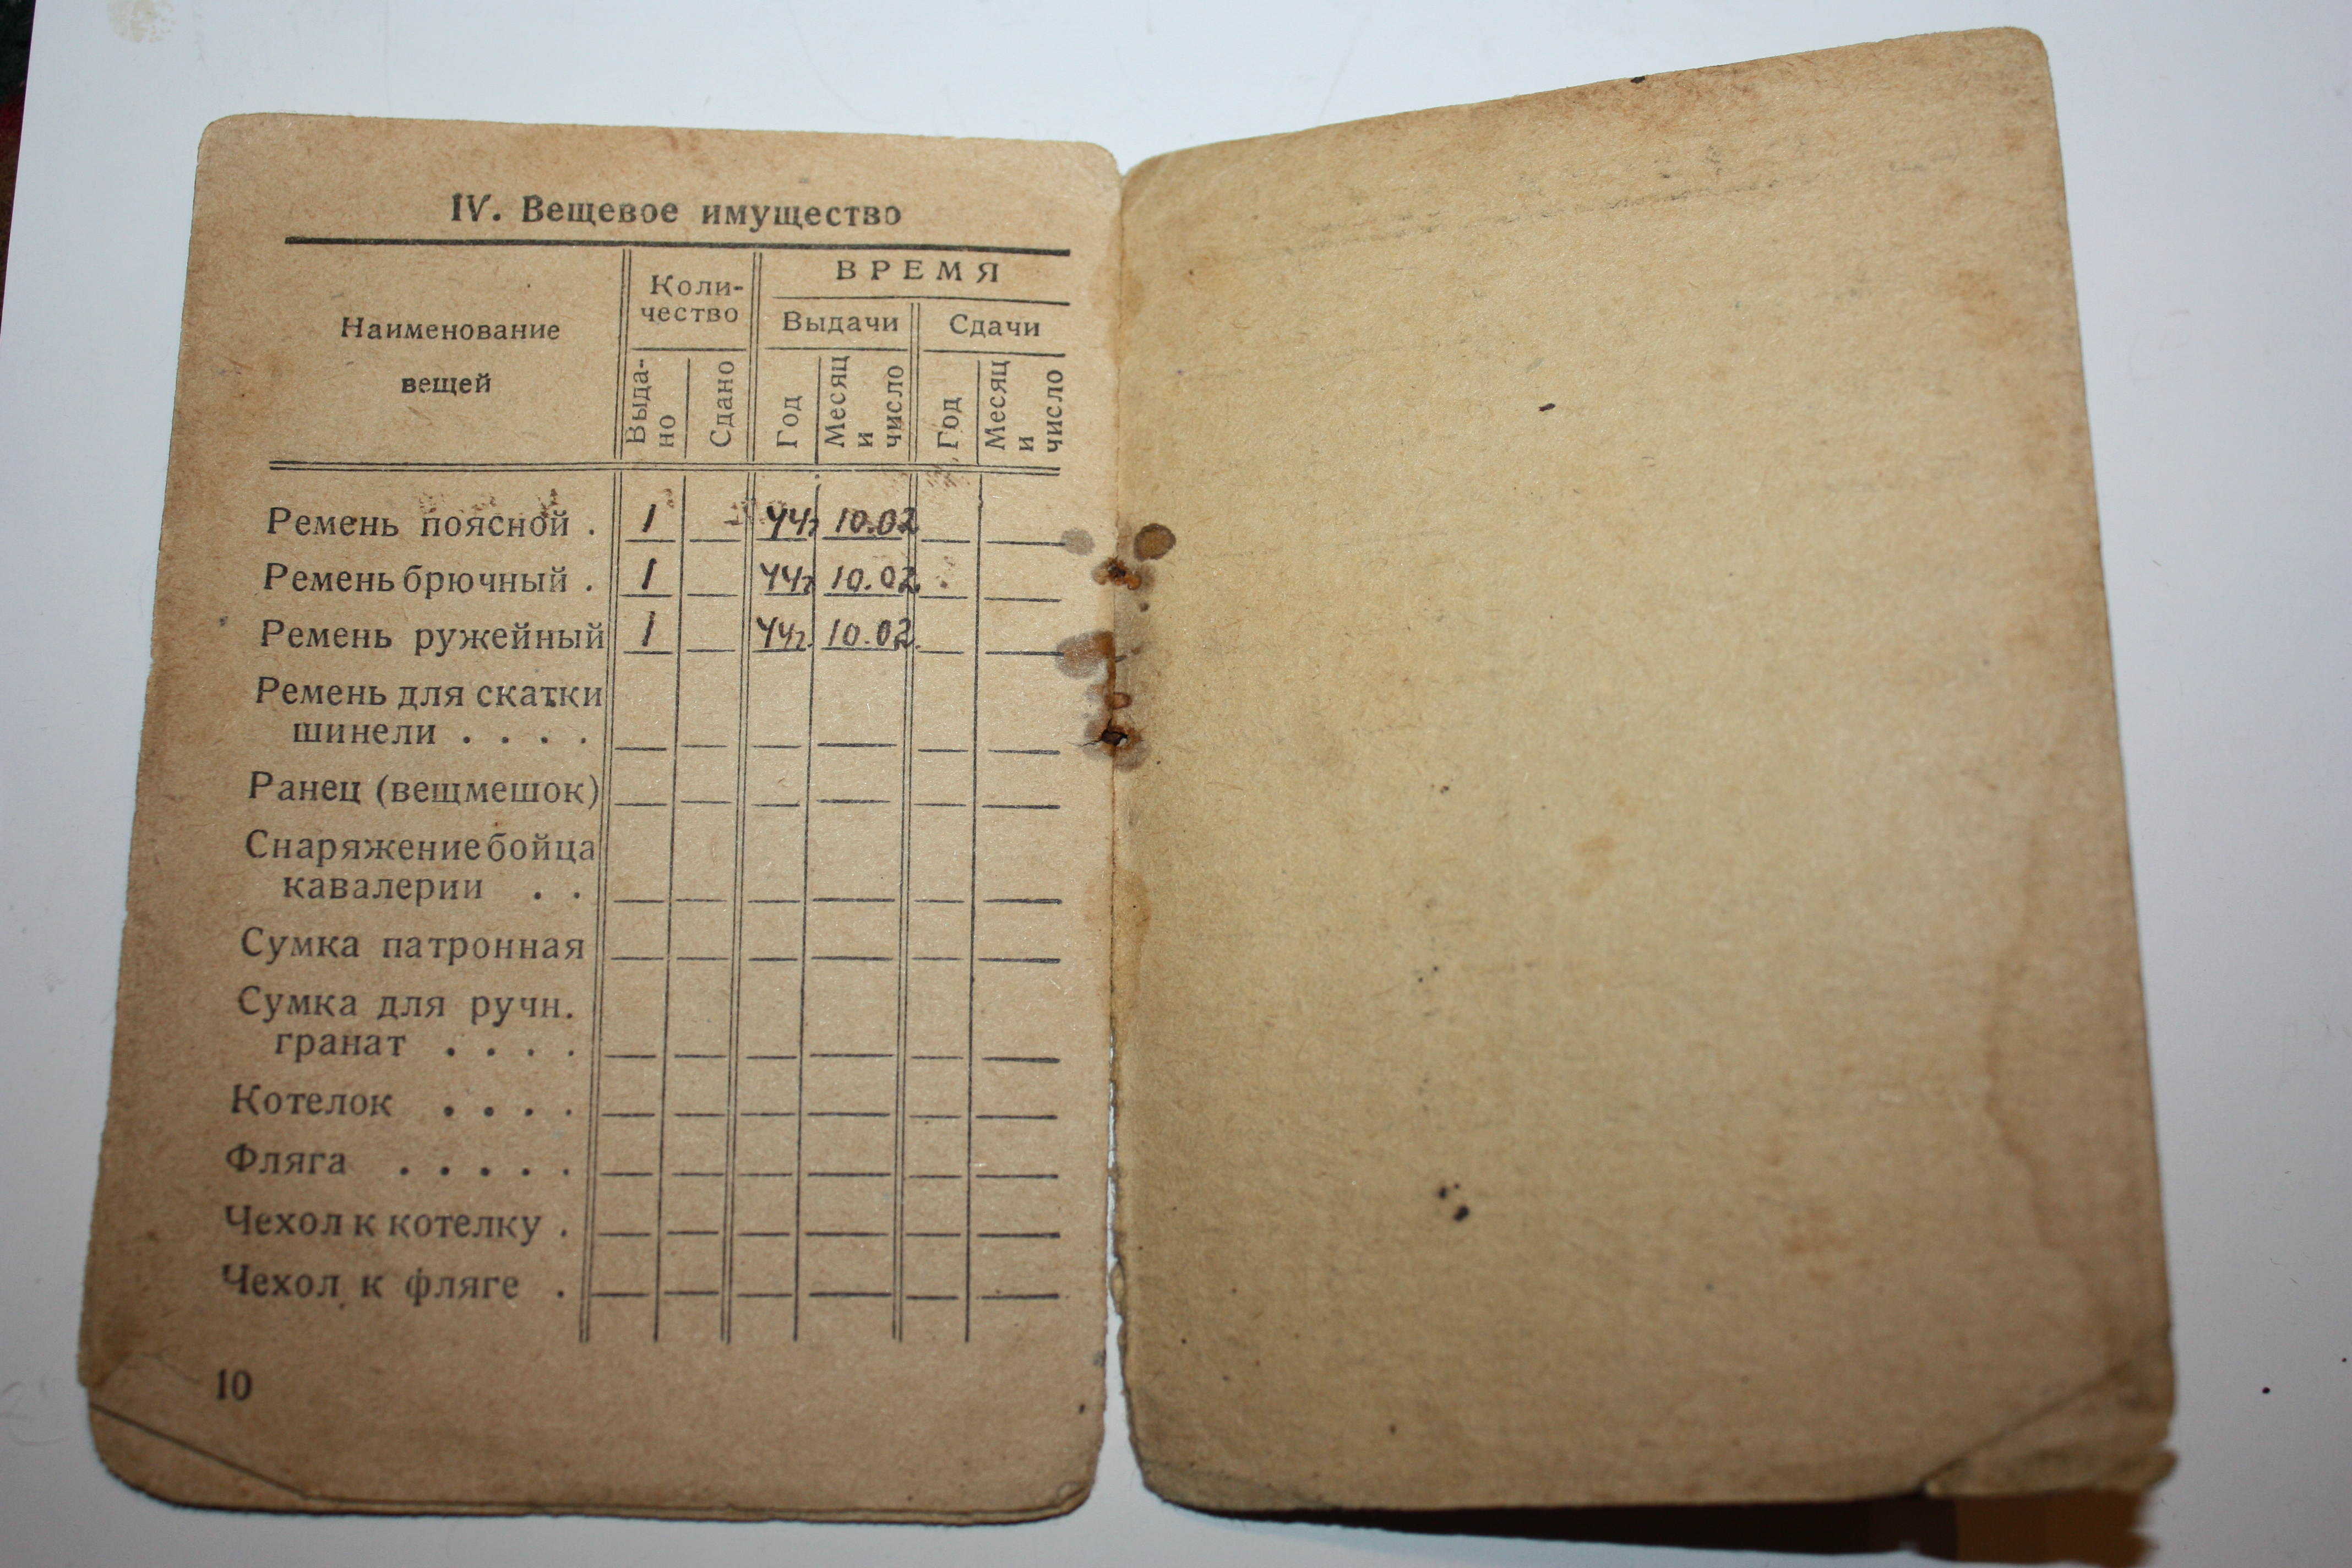 IV. Вещевое имущество
Наименование
вещей
Коли-
чество
ВРЕМЯ
Выдачи
Сдачи
Выда-
но
Сдано
Год
Месяц
и
число
Год
Месяц
и
число
Ремень поясной . 1 44г 10.02
Ремень брючный . 1 44г 10.02.
Ремень ружейный 1 44г. 10.02.
Ремень для скатки
шинели . . . .
Ранец (вещмешок)
Снаряжение бойца
кавалерии . .
Сумка патронная
Сумка для ручн.
гранат . . . .
Котелок . . . .
Фляга . . . . .
Чехол к котелку .
Чехол к фляге .
10